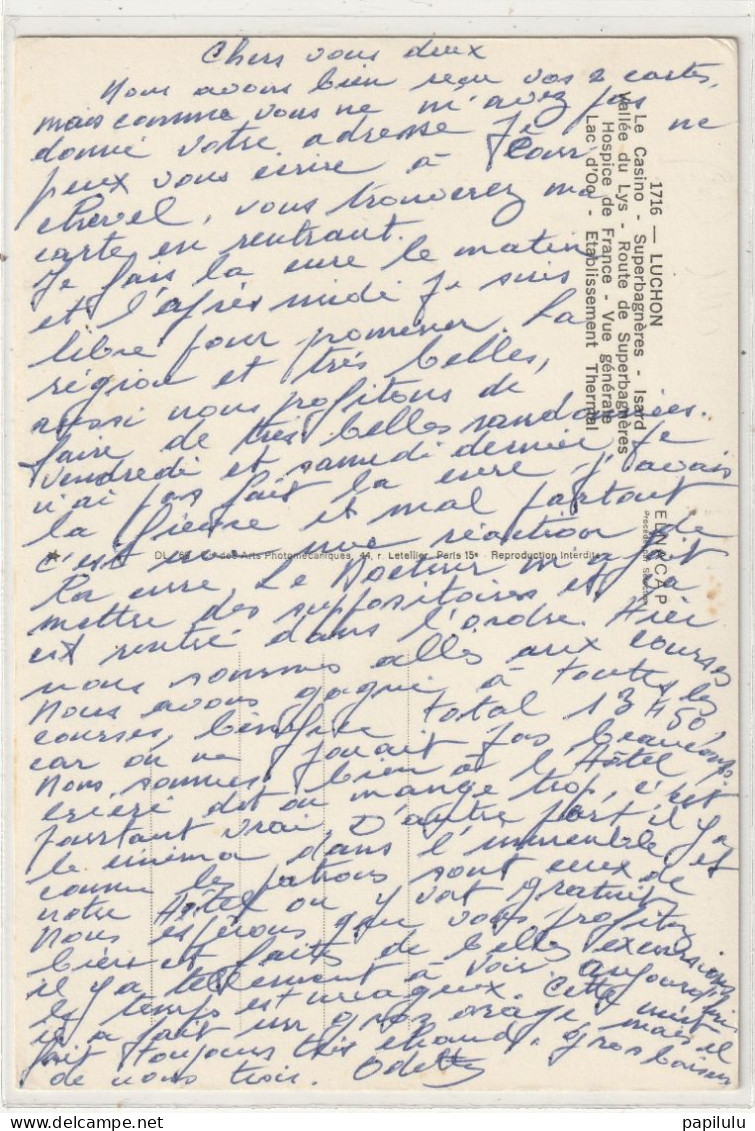 Chers vous deux
Nous avons bien reçu vos 2 cartes,
mais comme vous ne m'avez pas
donné votre adresse je ne
peux vous écrire à Cour
chevel, vous trouverez ma
carte en rentrant.
Je fais la cure le matin
et l'après midi je suis
libre pour promener. La
région et très belles,
aussi nous profitons de
faire de très belles randonnées.
Vendredi et samedi dernier, je
n'ai pas fait la cure j'avais
la fièvre et mal partout
c'est une réaction de
la cure. Le Docteur m'a fait
mettre des suppositoires et ça
est rentré dans l'ordre. Hier
nous sommes allés aux courses
Nous avons gagné à toutes les
courses, bénéfice total 13 450,
car on ne jouait pas beaucoup.
Nous sommes bien à l'Hôtel
dit on mange trop, c'est
pourtant vrai. D'autre part il y a
le cinéma dans l'immeuble, et
comme les patrons sont ceux de
notre Hôtel on y vat gratuit.
Nous espérons que vous profitez
bien et faits de belles excursions
il y a tellement à voir. Aujourd'hui
le temps est nuageux. Cette nuit
il a fait un gros orage mais il
fait toujours très chaud. Gros baisers
de nous trois. Odette
1716 — LUCHON
Le Casino - Superbagnères - Isard
Vallée du Lys - Route de Superbagnères
Hospice de France - Vue générale
Lac d'Oo - Etablissement Thermal
ELNACAP
DL 69 Cie des Arts Photomécaniques, 44, r. Letellier, Paris 15e - Reproduction Interdite
papilulu